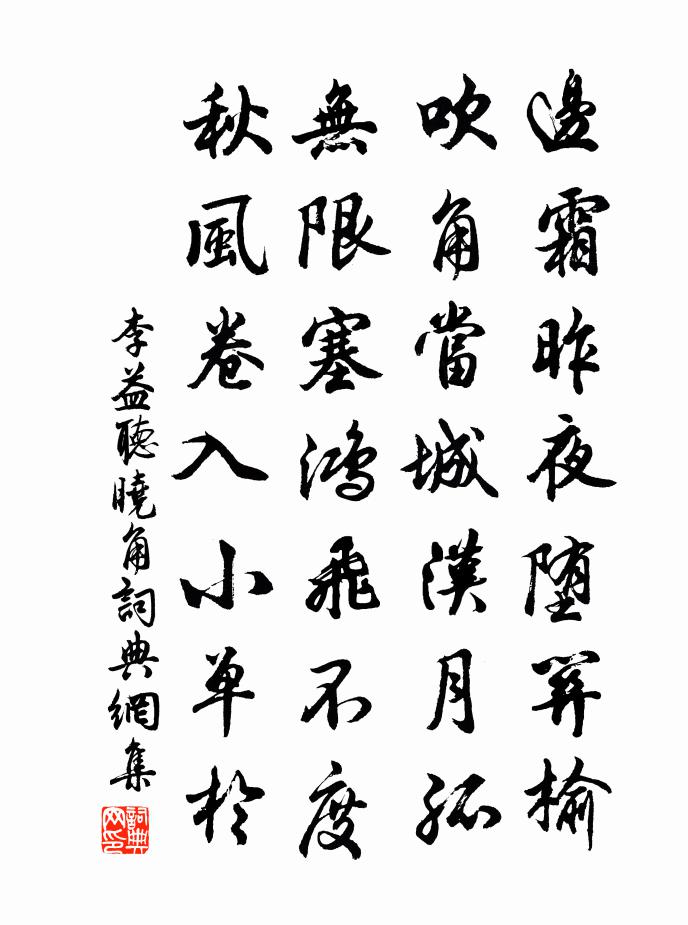 邊霜昨夜堕關榆
吹角當城漢月孤
無限塞鴻飛不度
秋風卷入小单於
李益聽曉角詞典網集
詞典网印